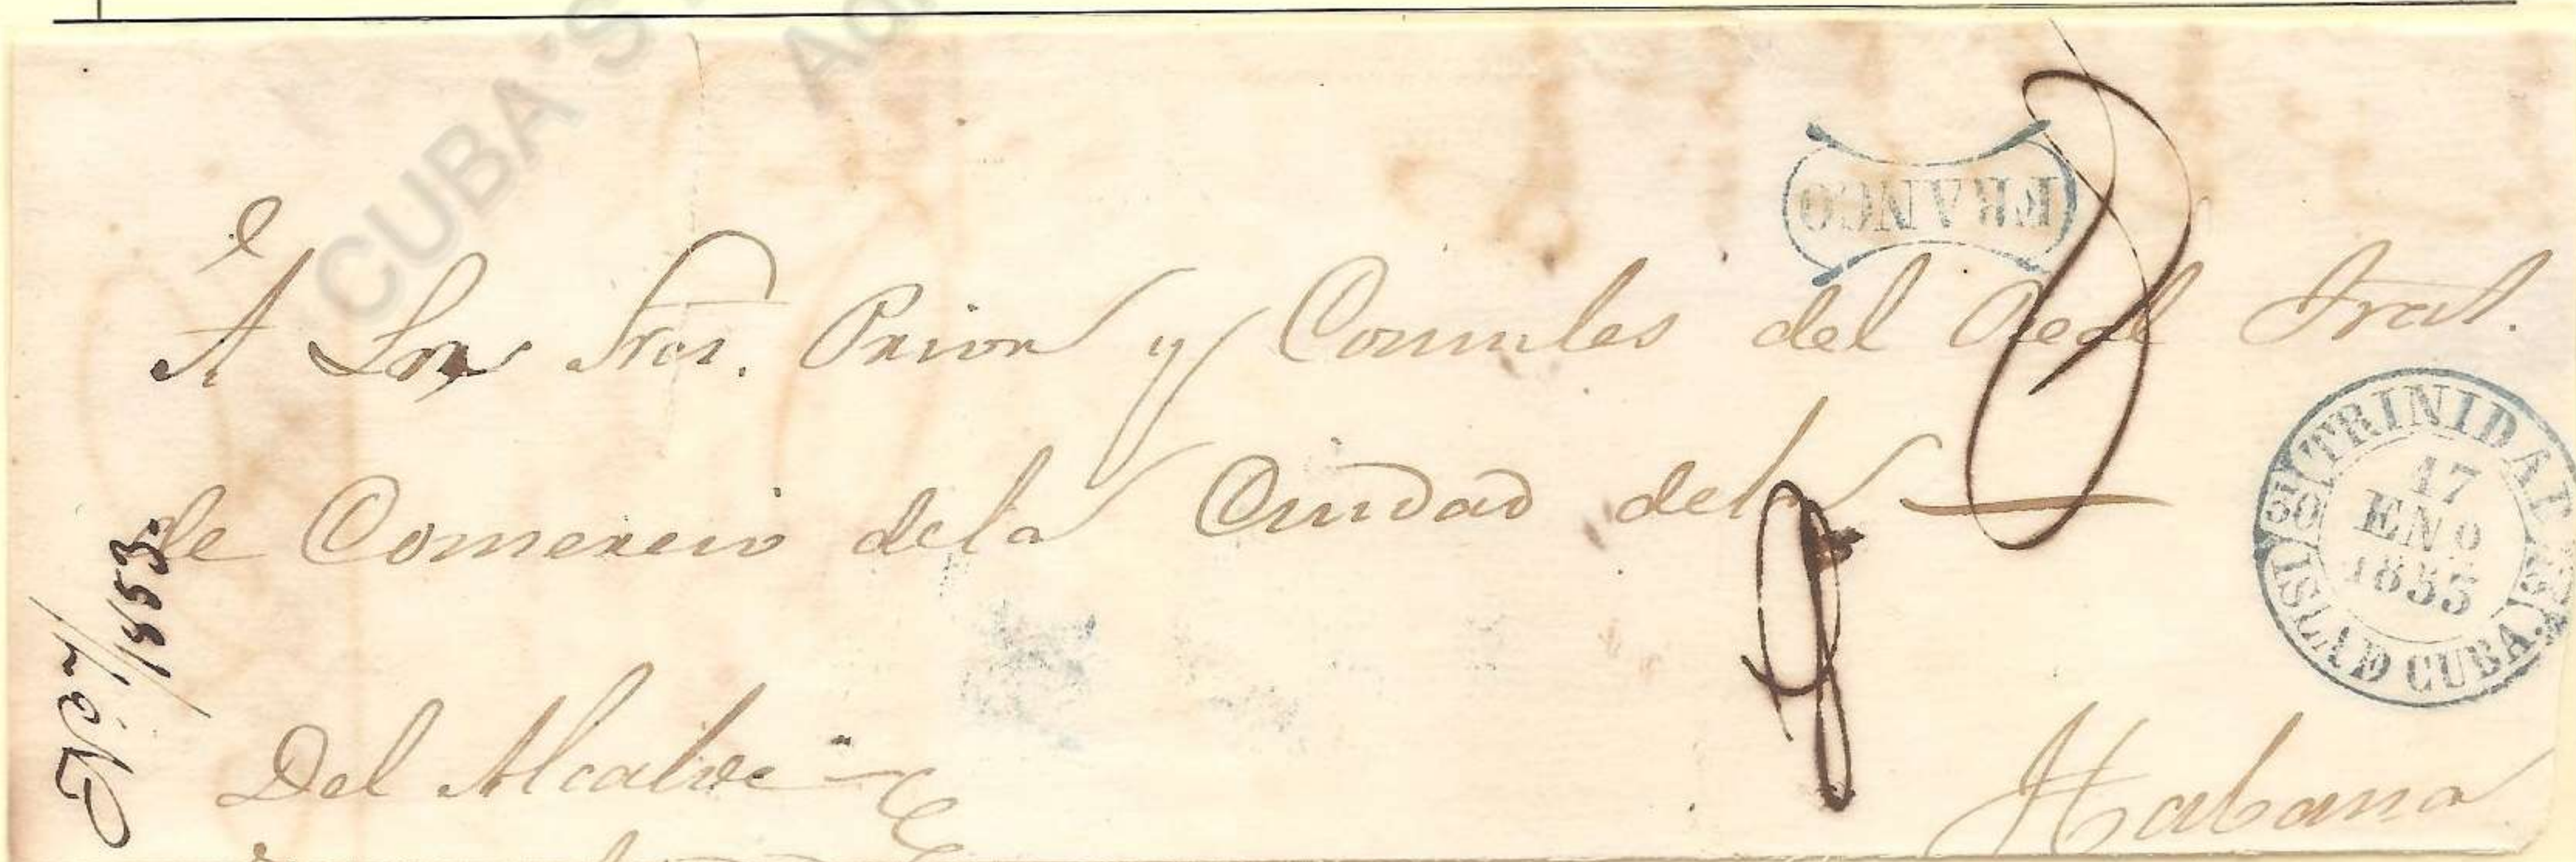 CUBA'S
FRANCO
A Los Sres. Prior y Consules del Real Tral.
de Comercio de la Ciudad de la
TRINIDAD
17
ENO
1853
ISLA D CUBA.
Nº 7/1853.
Del Alcalde
Habana